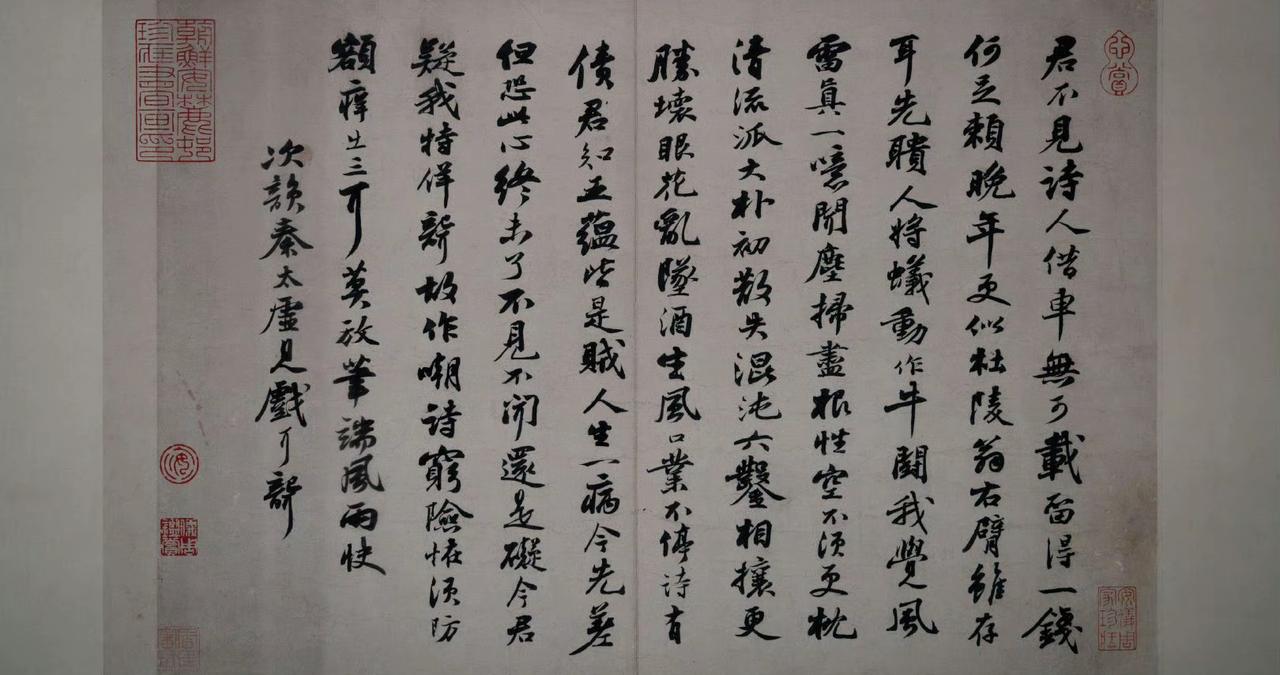 君不見詩人借車無可載留得一錢
何足賴晚年更似杜陵翁右臂雖存
耳先聵人將蟻動作牛鬪我覺風
雷真一噫聞塵掃盡根性空不須更枕
清流派大朴初散失混沌六鑿相攘更
勝壞眼花亂墜酒生風口業不停詩有
債君知五蘊皆是賊人生一病今先差
但恐此心終未了不見不聞還是礙今君
疑我特佯聾故作嘲詩窮險怪須防
額痒出三耳莫放筆端風雨快
次韻秦太虛見戲耳聾
朝鮮安麓邨珍藏書畫印
安儀周家珍藏